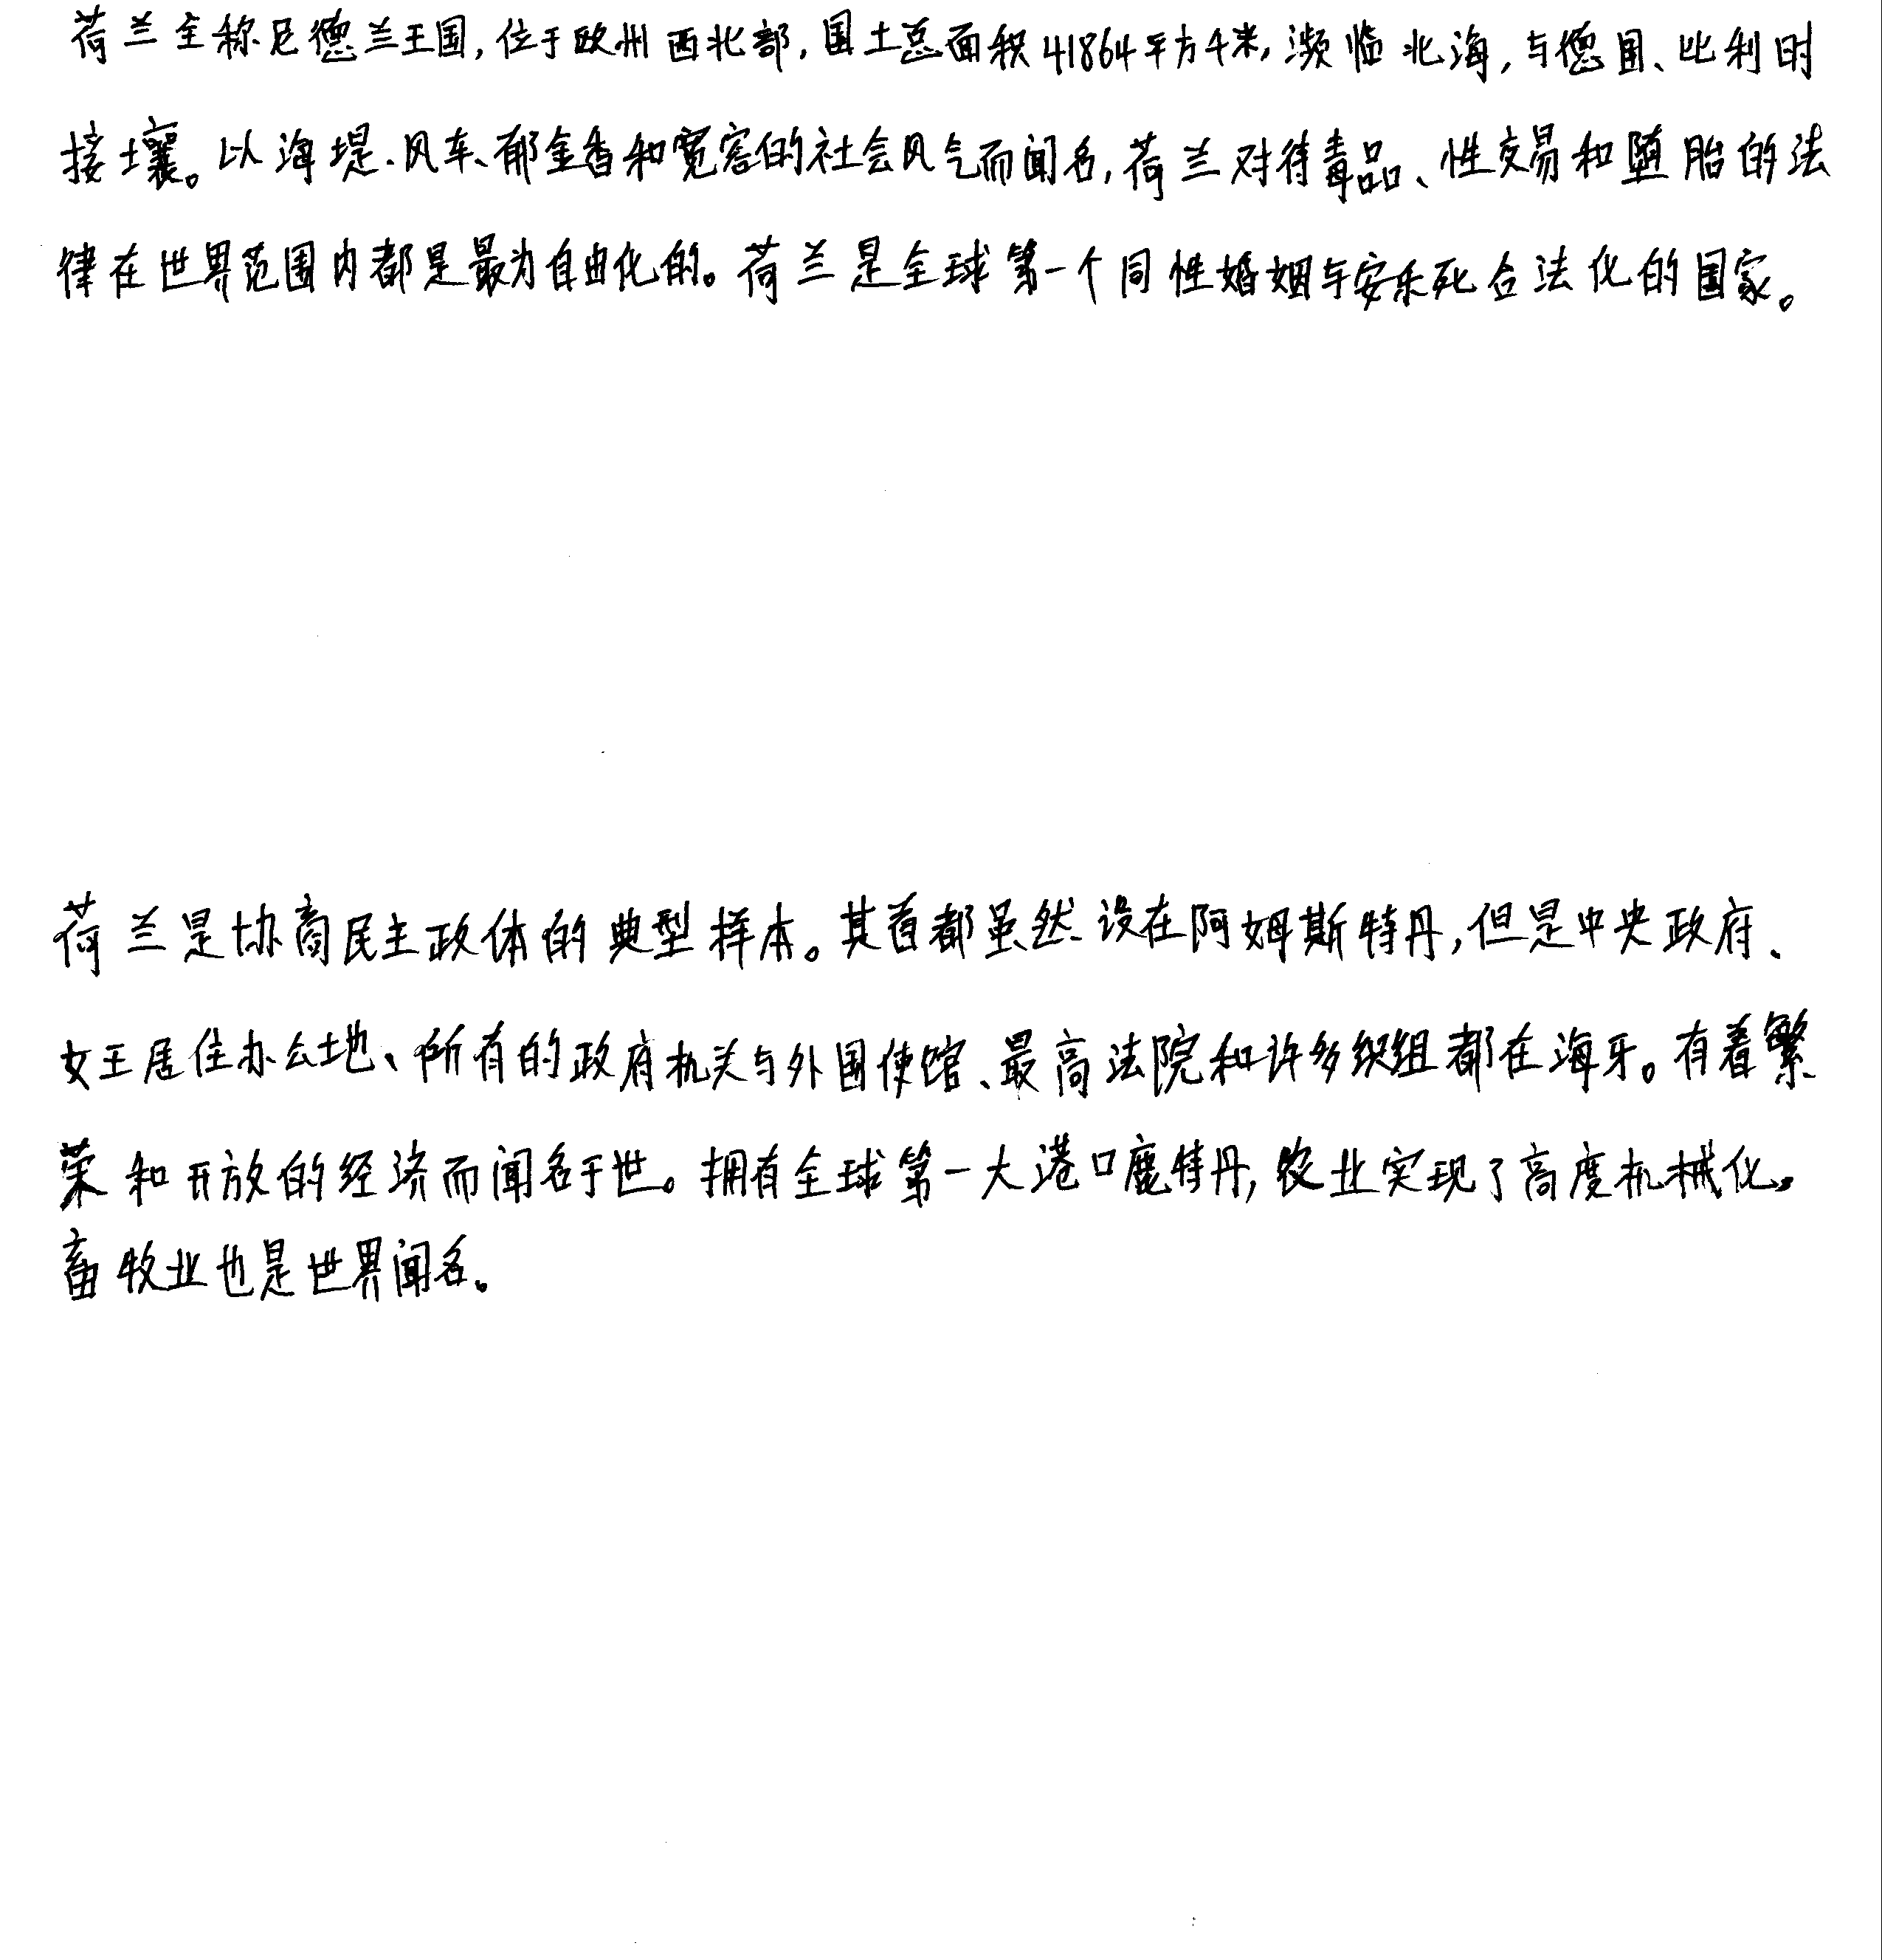 荷兰全称尼德兰王国,位于欧州西北部,国土总面积41864平方千米,濒临北海,与德国、比利时
接壤。以海堤、风车、郁金香和宽容的社会风气而闻名,荷兰对待毒品、性交易和堕胎的法
律在世界范围内都是最为自由化的。荷兰是全球第一个同性婚姻与安乐死合法化的国家。
荷兰是协商民主政体的典型样本。其首都虽然设在阿姆斯特丹,但是中央政府、
女王居住办公地、所有的政府机关与外国使馆、最高法院和许多织组都在海牙。有着繁
荣和开放的经济而闻名于世。拥有全球第一大港口鹿特丹,农业实现了高度机械化,
畜牧业也是世界闻名。